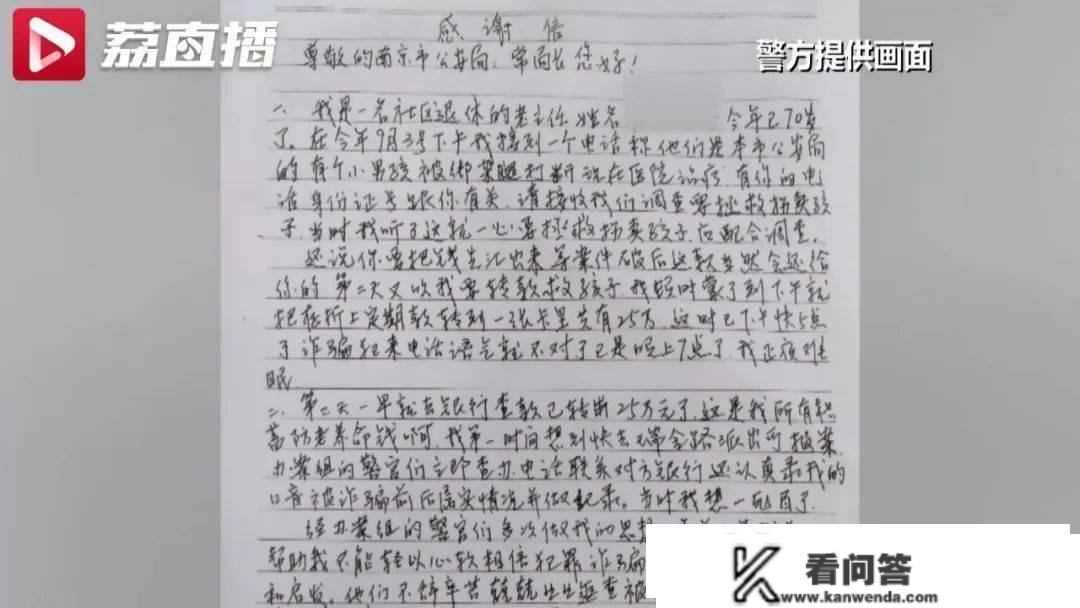 荔直播
警方提供画面
感谢信
尊敬的南京市公安局,常局长您好!
一、我是一名社区退休的老主任 姓名 今年已70岁
了。在今年9月3号下午我接到一个电话称他们是本市公安局
的有个小男孩被绑架腿打断现在医院治疗.有你的电
话身份证号跟你有关.请接收我们调查要拯救拐卖孩
子.当时我听了这就一心要拯救拐卖孩子后配合调查。
还说你要把钱先汇出来等案件破后这款当然会还给
你的 第二天又吹我要转款救孩子.我顿时蒙了到下午就
把存折上定期款转到一张卡里共有25万.这时已下午快5点
了诈骗犯来电话语气就不对了已是晚上7点了 我正夜难
眠
二、第二天一早就去银行查款已转断25万元了.这是我所有积
蓄防老养命钱啊.我第一时间想到快去瑞金路派出所报案
办案组的警官们立即查办.电话联系对方银行还认真录我的
口音被诈骗前后属实情况并做纪录。当时我想一死百了.
经办案组的警官们多次做我的思想
帮助我不能轻以心软相信犯罪诈骗
和启发.他们不辞辛苦兢兢业业追查被
看问答
www.kanwenda.com